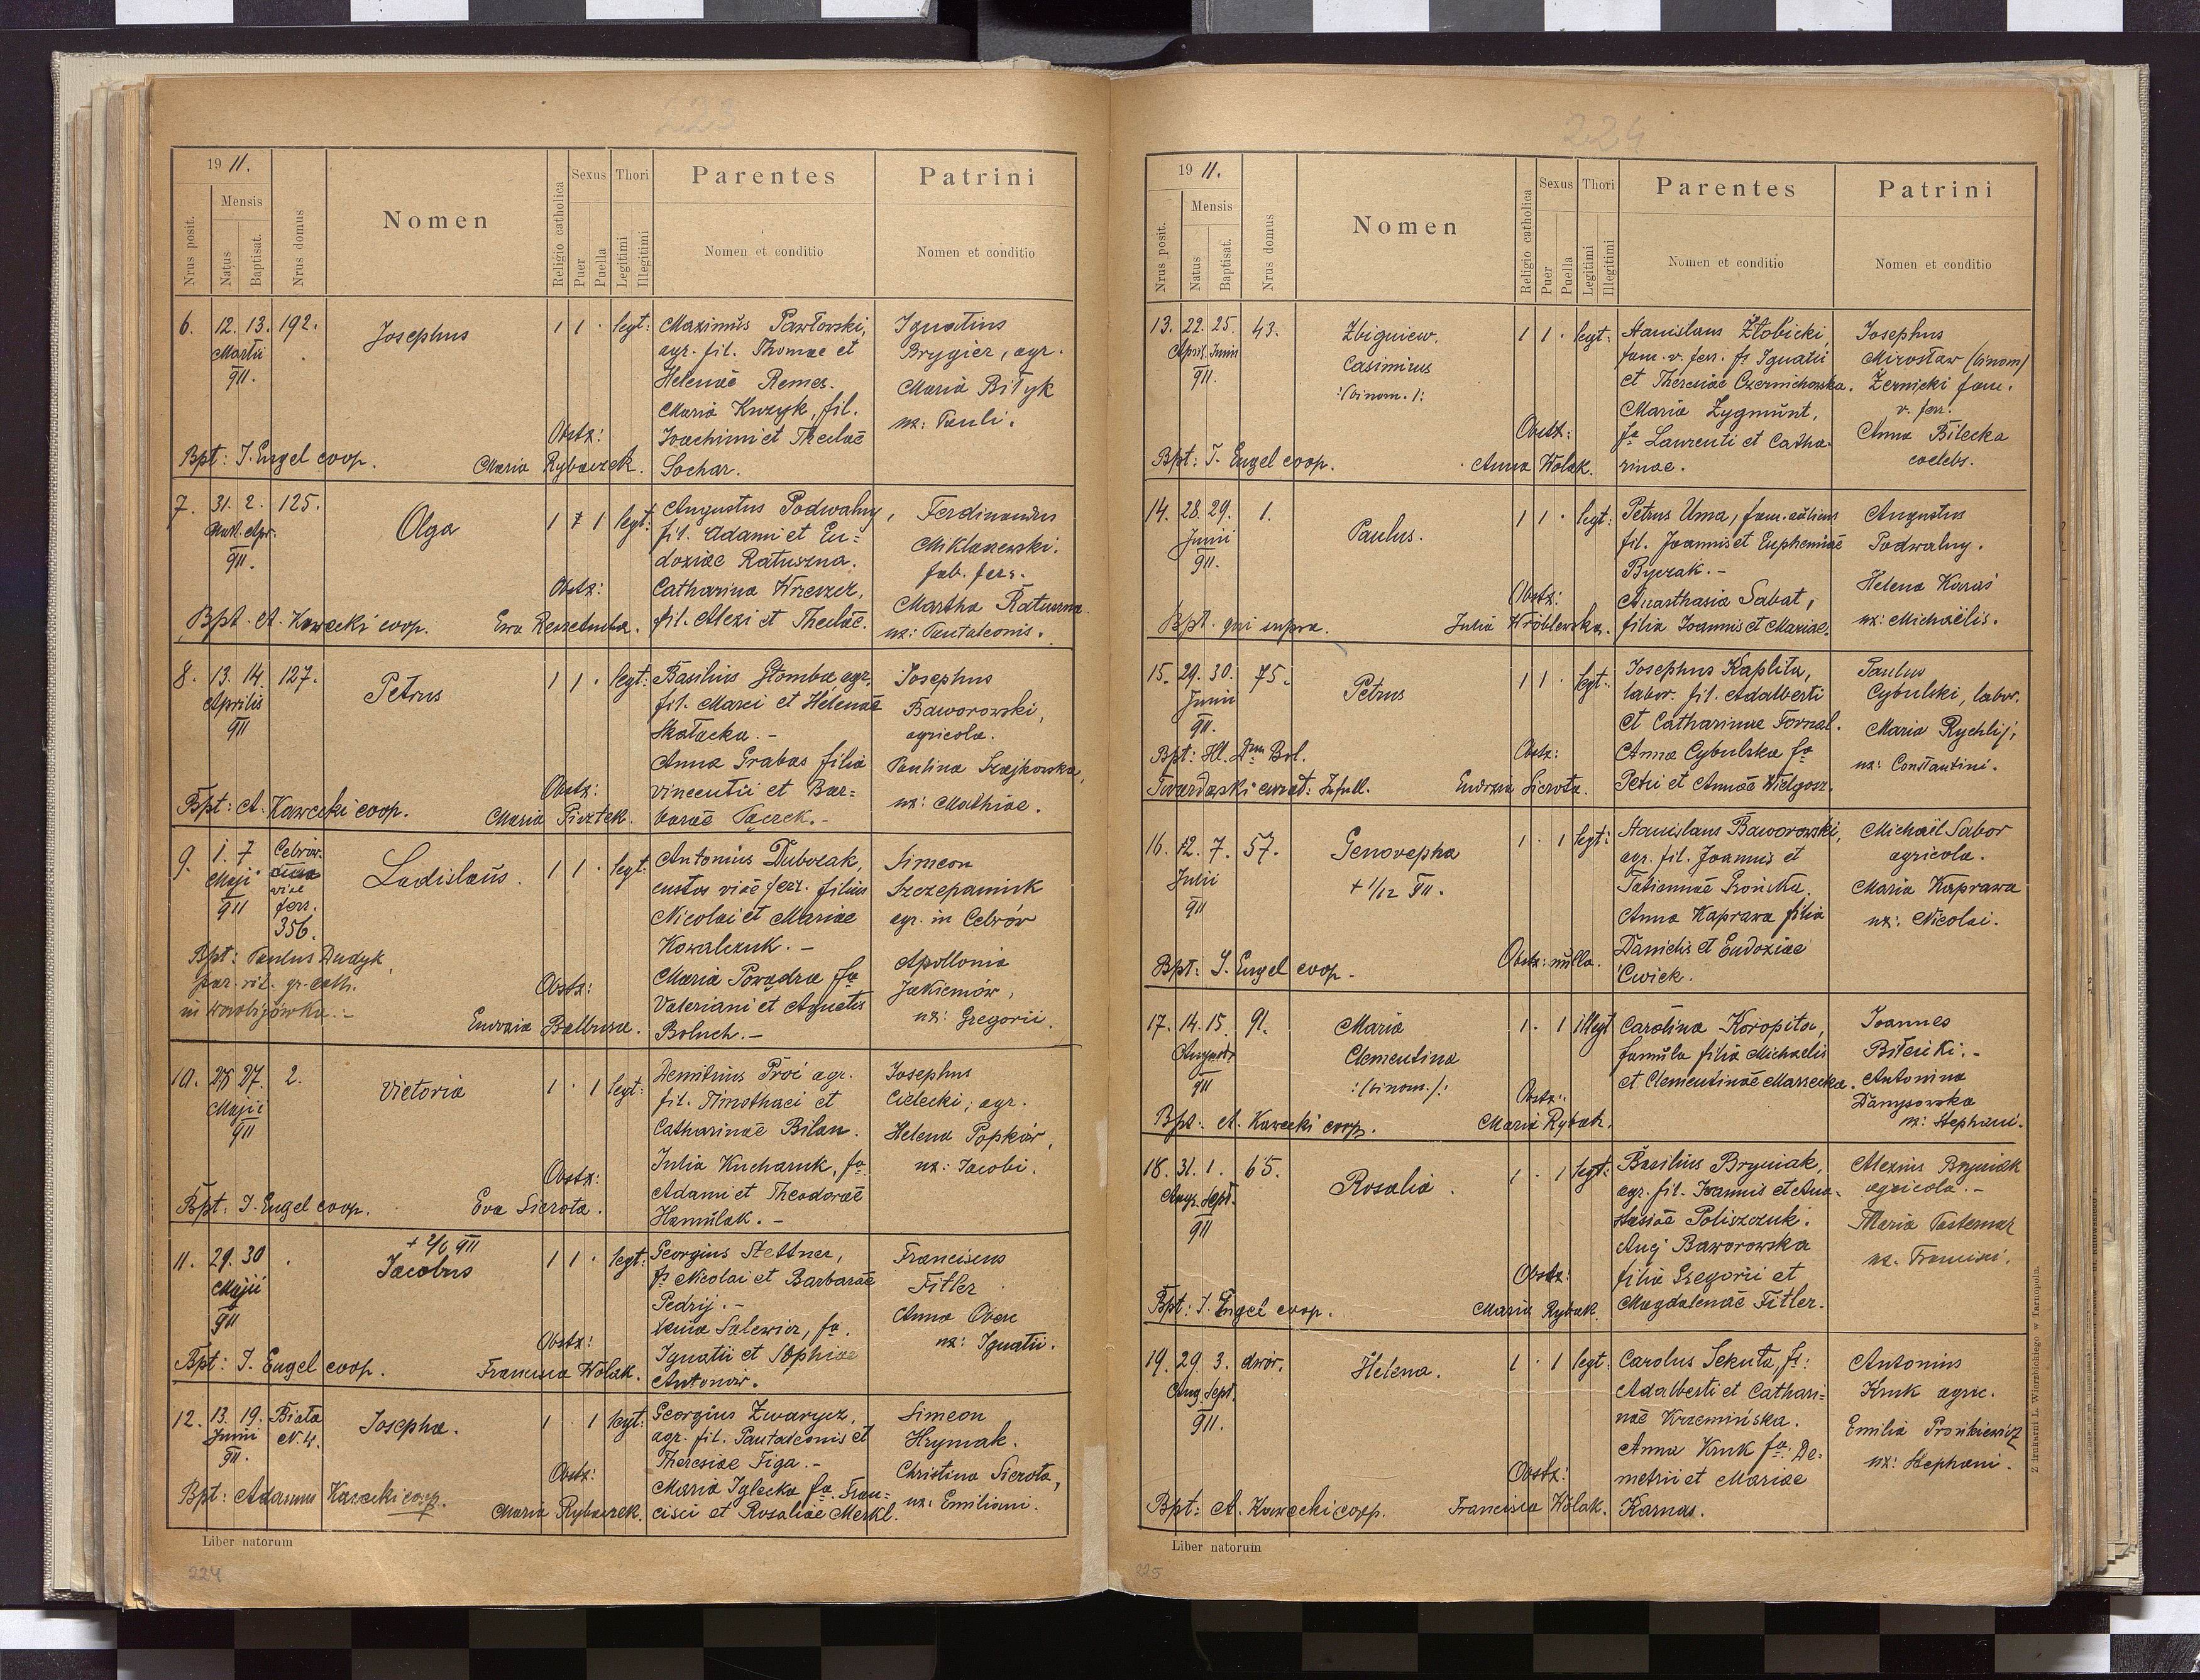 223
19 11.
Nrus posit.
Mensis
Natus
Baptisat.
Nrus domus
Nomen
Religio catholica
Sexus
Puer
Puella
Thori
Legitimi
Illegitimi
Parentes
Nomen et conditio
Patrini
Nomen et conditio
6. 12. 13. 192. Josephus 1 1 . legt: Maximus Pawłowski, Ignatius
Martii agr. fil. Thomae et Brygier, agr.
911. Helenae Remes. Maria Biłyk
Maria Kuzyk, fil. ux: Pauli.
Obstx: Joachimi et Theclae
Bpt: J. Engel coop. Maria Rybaczek. Sochar.
7. 31. 2. 125. Olga 1 1 legt: Augustus Podwalny, Ferdinandus
Mart. Apr. fil. Adami et Eu= Miklaszewski.
911. doxiae Ratuszna. fab. ferr.
Obstx: Catharina Wreszcz, Martha Ratuszna
Bpt. A. Kawecki coop. Eva fil. Alexi et Theclae. ux: Pantaleonis.
8. 13. 14. 127. Petrus 1 1 . legt: Basilius Stomba agr. Josephus
Aprilis fil. Marci et Helenae Baworowski,
911 Skałacka. - agricola.
Anna Grabas filia Paulina Szajkowska,
Obstx: Vincentii et Bar= ux: Mathiae.
Bpt: A. Kawecki coop. Maria Pisztek. barae Tączek. -
9. 1. 7 Cebrów Ladislaus. 1 1 . legt: Antonius Dubczak, Simeon
Maji viae custos viae ferr. filius Szczepaniuk
911 ferr. Nicolai et Mariae agr. in Cebrów
356. Kowalczuk. - Apollonia
Bpt: Paulus Dudyk, Maria Powądra fa Jakiemów,
par. rit. gr. cath. Obstx: Valeriani et Agnetis ux: Gregorii.
in Worobijówka. - Balbuza. Boluch. -
10. 27. 2. Victoria 1 . 1 legt: Demitrius Proi agr. Josephus
Majii fil. Timothaei et Cielecki, agr.
911 Catharinae Bilan. Helena Popków,
Obstx: Julia Kucharuk, fa ux: Jacobi.
Adami et Theodorae
Bpt: J. Engel coop. Eva Sierota. Hamulak. -
11. 29. 30 . + 2/6 911 Jacobus 1 1 . legt: Georgius Stettner, Franciscus
Majii fs Nicolai et Barbarae Fitler
911 Pedrij. - Anna Oben
Obstx: Xenia Salewicz, fa. ux: Ignatii.
Bpt: J. Engel coop. Francisca Wolak. Ignatii et Sophiae
Antonów.
12. 13. 19. Biała Josepha. 1 . 1 legt: Georgius Zwarycz, Simeon
Junii N. 4. agr. fil. Pantaleonis et Hrymak.
911. Theresiae Figa. - Christina Sierota,
Obstx: Maria Iglecka fa. Fran= ux: Emiliani.
Bpt: Adamus Kawecki coop. Maria Rybaczek. cisci et Rosaliae Merkl.
Liber natorum
224
224
19 11.
Nrus posit.
Mensis
Natus
Baptisat.
Nrus domus
Nomen
Religio catholica
Sexus
Puer
Puella
Thori
Legitimi
Illegitimi
Parentes
Nomen et conditio
Patrini
Nomen et conditio
13. 22. 25. 43. Zbigniew. 1 1 . legt: Stanislaus Żłobicki, Josephus
April. Junii Casimirus fam. v. ferr. fs Ignatii Mirosław (binom)
911. :/binom./: et Theresiae Czernichowska. Żernicki fam.
Maria Zygmunt, v. ferr.
Obstx: fa Laurenti et Catha- Anna Bilecka
Bpt: J. Engel coop. Anna Wolak. rinae. coelebs.
14. 28. 29. 1. Paulus. 1 1 . legt: Petrus Uma, fam. aulicus Augustus
Junii fil. Joannis et Euphemiae Podwalny.
911. Byczak. - Helena Karaś
Obstx: Anasthasia Sabat, ux: Michaëlis.
Bpt. qui supra. Julia Wróblewska. filia Joannis et Mariae.
15. 29. 30. 75. Petrus 1 1 . legt: Josephus Kaplita, Paulus
Junii labor. fil. Adalberti Cybulski, labor.
911. et Catharinae Fornal. Maria Rychlij,
Bpt: Bol. Obstx: Anna Cybulska fa ux: Constantini.
Twardowski curat: Eudoxia Sierota. Petri et Annae Wielgosz.
16. 12. 7. 57. Genovepha 1 . 1 legt: Stanislaus Baworowski, Michaël Sabor
Julii + 1/12 911. agr. fil. Joannis et agricola.
911 Tatiannae Prońska. Maria Kaprawa
Anna Kaprawa filia ux: Nicolai.
Obstx: nulla. Danielis et Eudoxiae
Bpt: J. Engel coop. Cwiek.
17. 14. 15. 91. Maria 1 . 1 illegt Carolina Koropita, Joannes
Augusti Clementina famula filia Michaelis Biłeński. -
911 :/binom./: et Clementinae Marsecka. Antonina
Obstx: Danysowska
Bpt: A. Kawecki coop. Maria Rybak. ux: Stephani.
18. 31. 1. 65. Rosalia. 1 . 1 legt: Basilius Bryniak, Alexius Bryniak
Aug. Sept. agr. fil. Joannis et Ana- agricola. -
911 stasiae Poliszczuk. Maria Pasternak
Baworowska ux. Francisci.
Obstx: filia Gregorii et
Bpt: J. Engel coop. Maria Rybak. Magdalenae Fitler.
19. 29. 3. dwór. Helena. 1 . 1 legt: Carolus Sekuta, fs: Antonius
Aug. Sept. Adalberti et Cathari= Kruk agric.
911. nae Krzemińska. Emilia Prońkiewicz
Anna Kruk fa. De= ux: Stephani.
Obstx: metrii et Mariae
Bpt: A. Kawecki coop. Francisca Wolak. Karnas.
Liber natorum
225
Z drukarni L. Wierzbickiego w Tarnopolu.